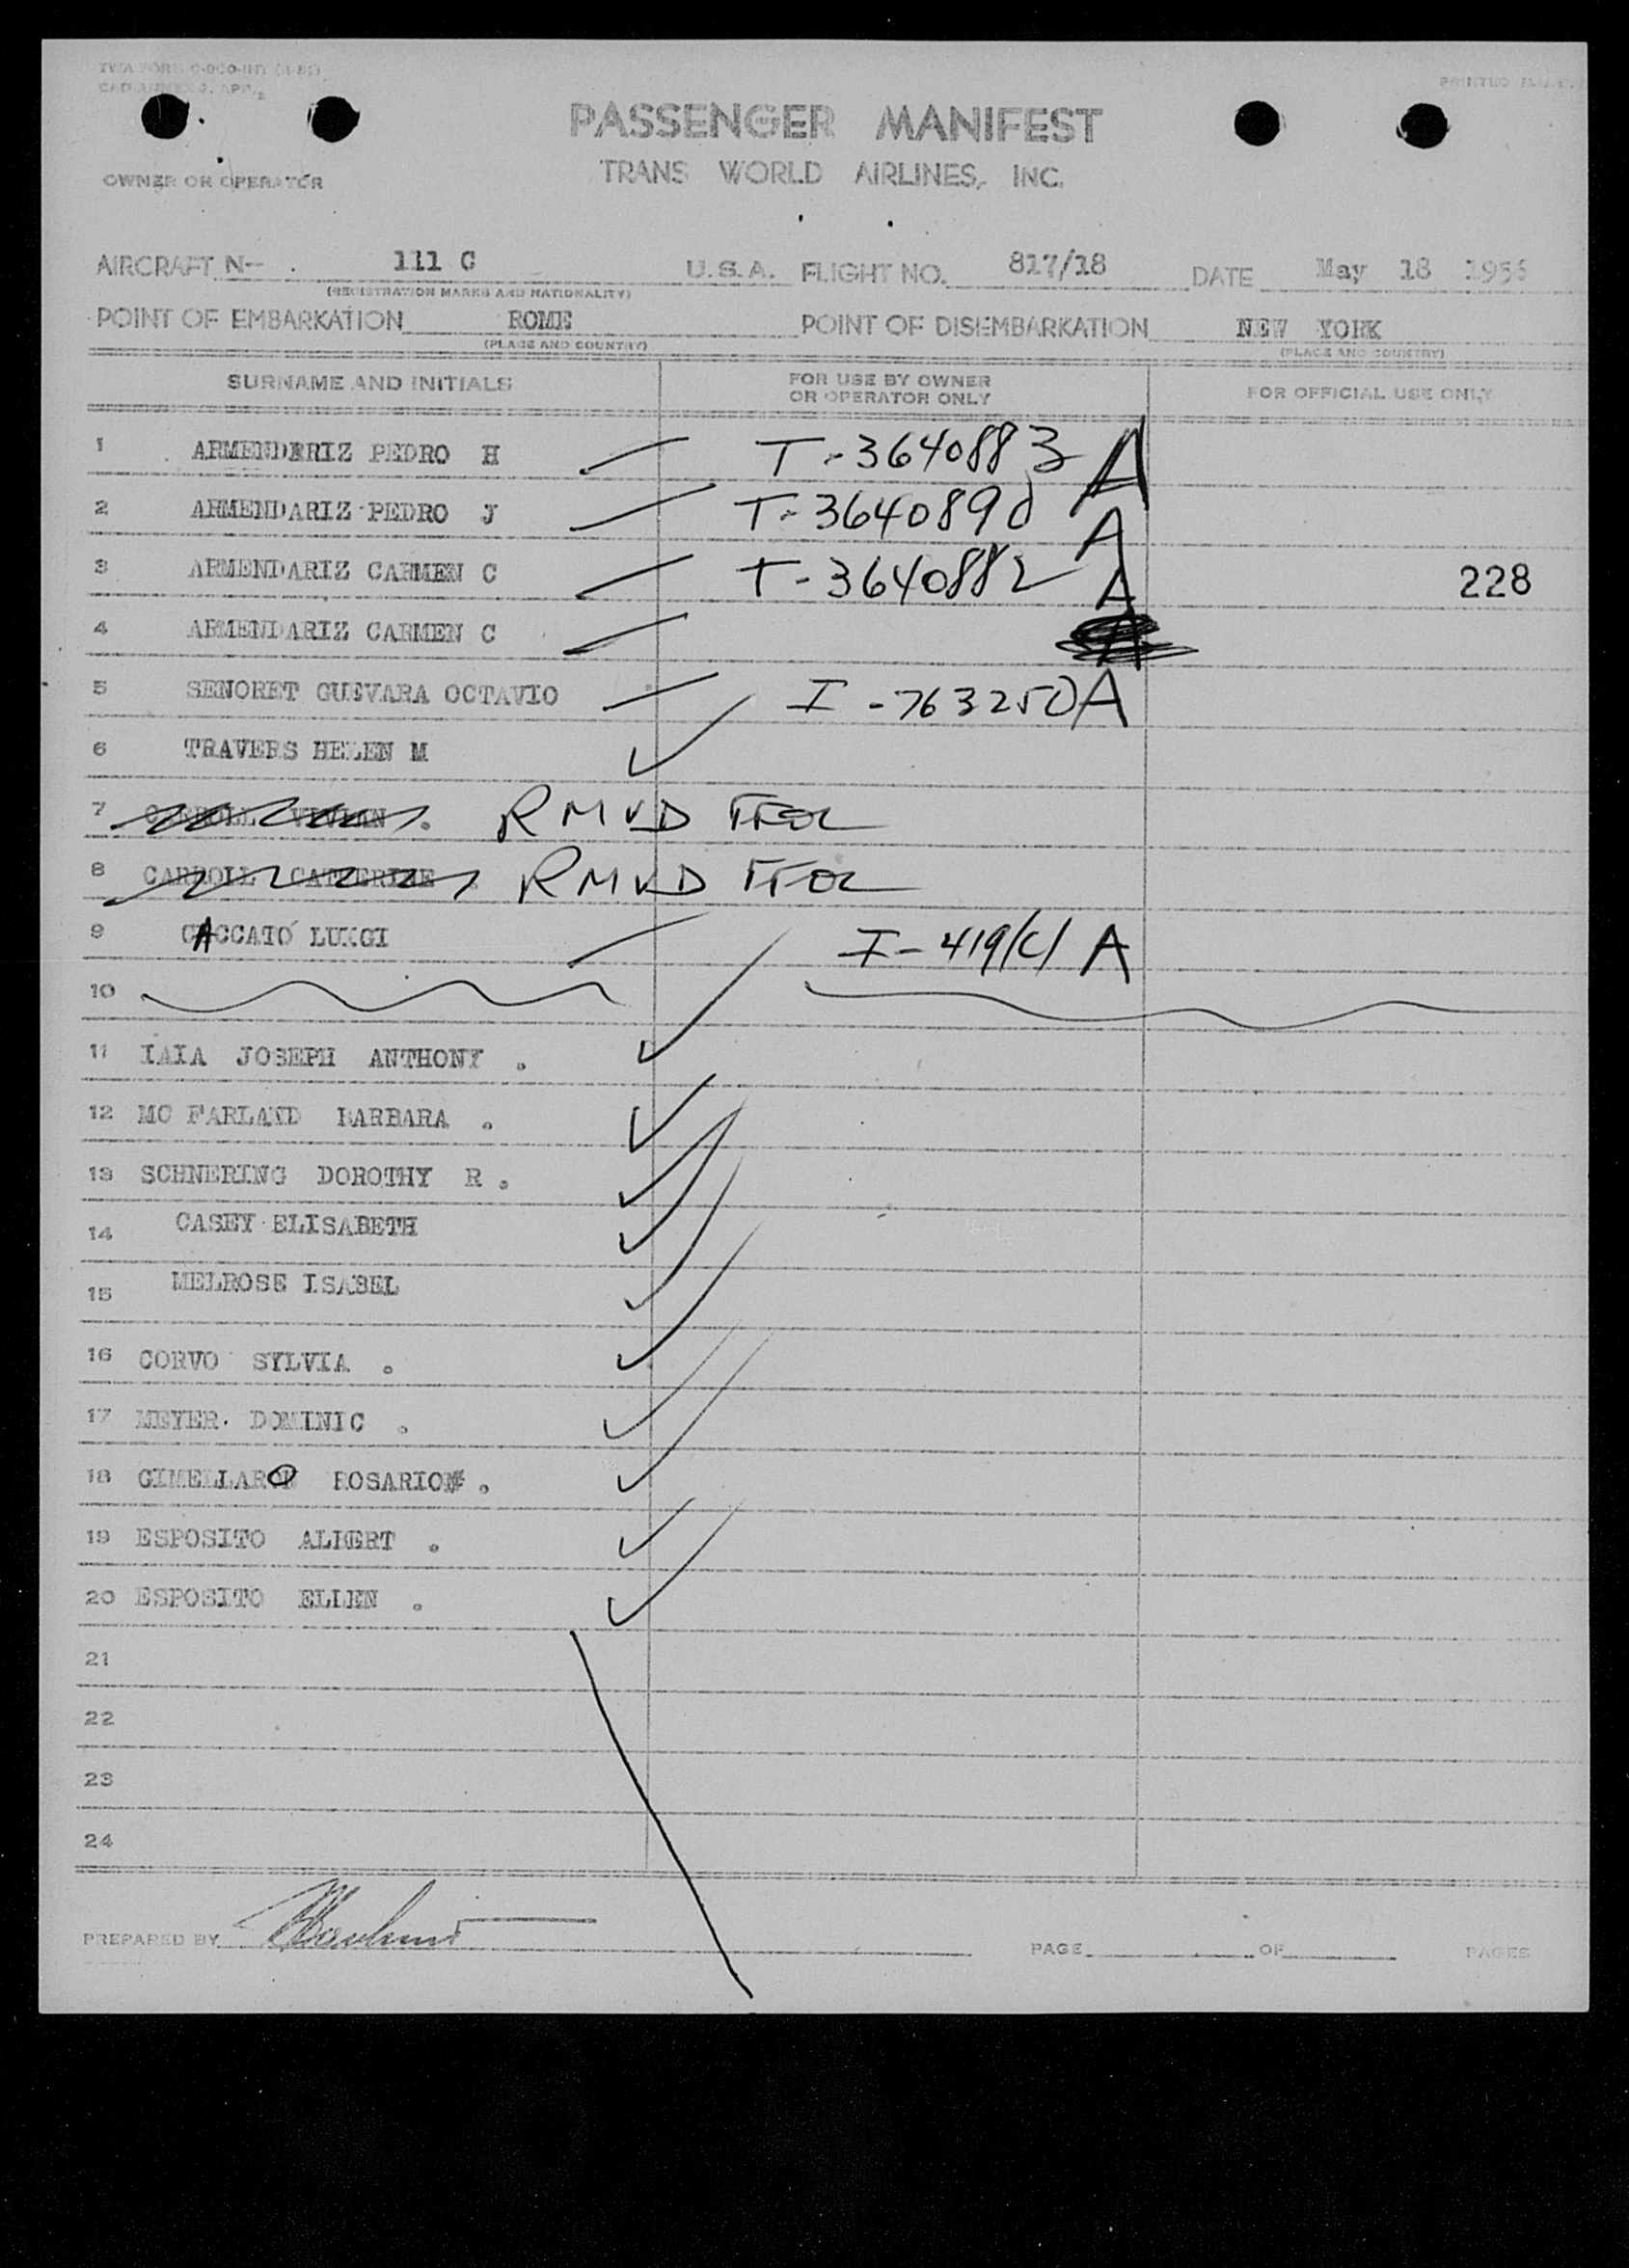 PASSENGER MANIFEST
TRANS WORLD AIRLINES, INC.
OWNER OR OPERATOR
AIRCRAFT N- 111 C U.S.A. FLIGHT NO. 817/18 DATE May 18 1956
(REGISTRATION MARKS AND NATIONALITY)
POINT OF EMBARKATION ROME POINT OF DISEMBARKATION NEW YORK
(PLACE AND COUNTRY) (PLACE AND COUNTRY)
SURNAME AND INITIALS FOR USE BY OWNER OR OPERATOR ONLY FOR OFFICIAL USE ONLY
1 ARMENDERIZ PEDRO H T-3640883 A
2 ARMENDARIZ PEDRO J T-3640890 A
3 ARMENDARIZ CARMEN C T-3640882 A 228
4 ARMENDARIZ CARMEN C
5 SENORET GUEVARA OCTAVIO I-763250 A
6 TRAVERS HELEN M
7 CARROLL VIVIAN . RMVD
8 CARROLL CATHERINE RMVD
9 CACCAIO LUIGI I-419/C/ A
10
11 IAIA JOSEPH ANTHONY .
12 MC FARLAND BARBARA .
13 SCHNERING DOROTHY R .
14 CASEY ELISABETH
15 MELROSE ISABEL
16 CORVO SYLVIA .
17 MEYER DOMINIC .
18 GIMELLARO ROSARIO .
19 ESPOSITO ALBERT .
20 ESPOSITO ELLEN .
21
22
23
24
PREPARED BY PAGE OF PAGES